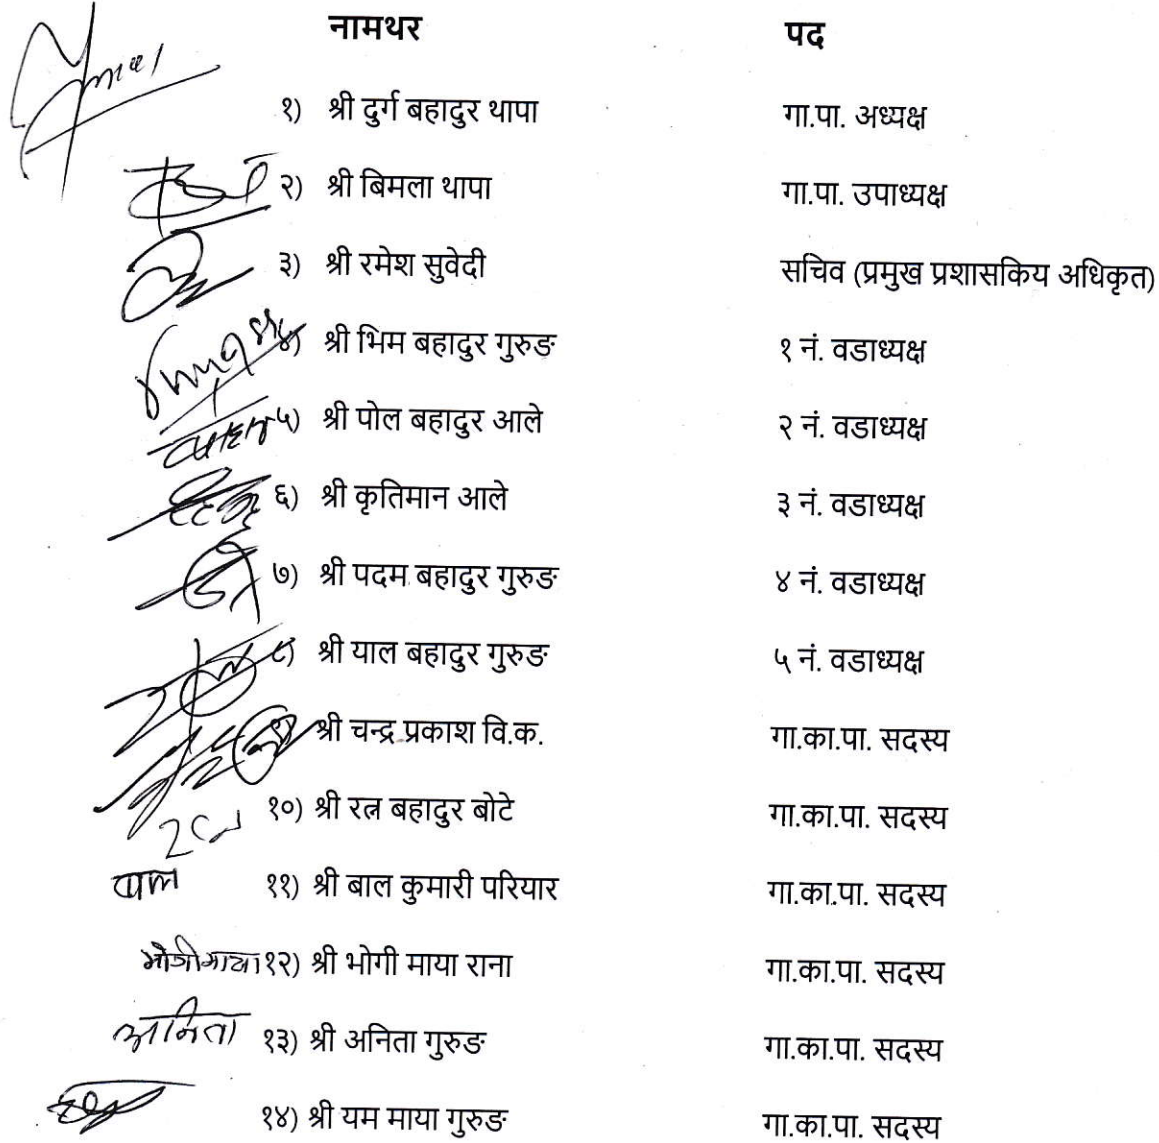 नामथर पद
१) श्री दुर्ग बहादुर थापा गा.पा. अध्यक्ष
२) श्री बिमला थापा गा.पा. उपाध्यक्ष
३) श्री रमेश सुवेदी सचिव (प्रमुख प्रशासकिय अधिकृत)
४) श्री भिम बहादुर गुरुङ १ नं. वडाध्यक्ष
५) श्री पोल बहादुर आले २ नं. वडाध्यक्ष
६) श्री कृतिमान आले ३ नं. वडाध्यक्ष
७) श्री पदम बहादुर गुरुङ ४ नं. वडाध्यक्ष
८) श्री याल बहादुर गुरुङ ५ नं. वडाध्यक्ष
९) श्री चन्द्र प्रकाश वि.क. गा.का.पा. सदस्य
१०) श्री रत्न बहादुर बोटे गा.का.पा. सदस्य
बाल ११) श्री बाल कुमारी परियार गा.का.पा. सदस्य
भोगीमाया १२) श्री भोगी माया राना गा.का.पा. सदस्य
अनिता १३) श्री अनिता गुरुङ गा.का.पा. सदस्य
१४) श्री यम माया गुरुङ गा.का.पा. सदस्य